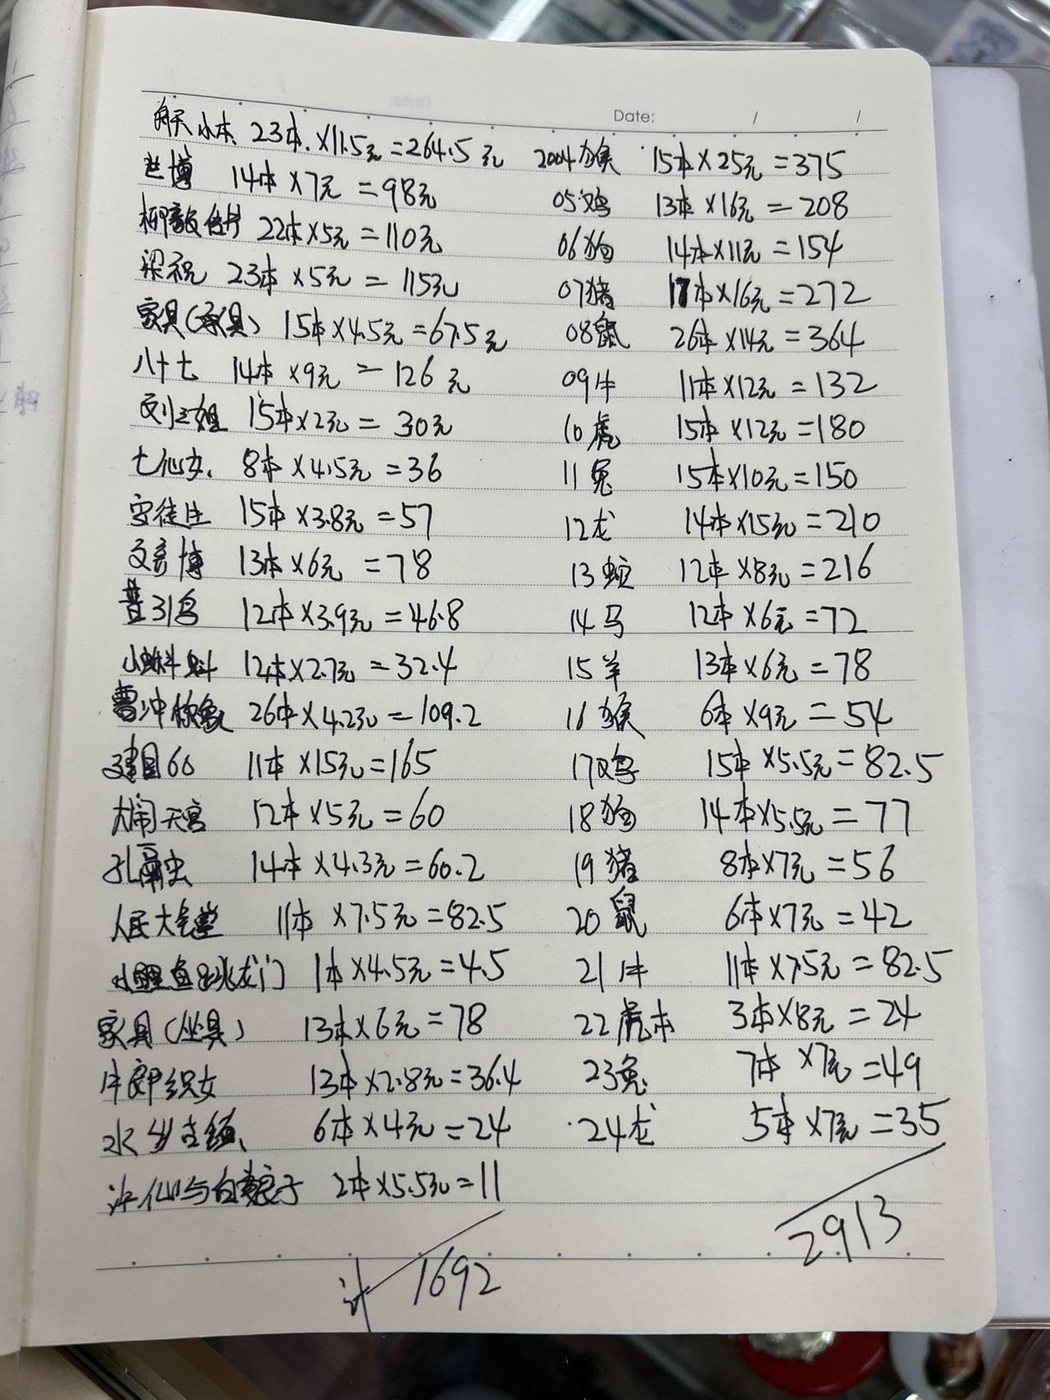 Date: / /
航天小本 23本×11.5元=264.5元 2004猴 15本×25元=375
世博 14本×7元=98元 05鸡 13本×16元=208
柳毅传书 22本×5元=110元 06狗 14本×11元=154
梁祝 23本×5元=115元 07猪 17本×16元=272
家具(承具) 15本×4.5元=67.5元 08鼠 26本×14元=364
八十七 14本×9元=126元 09牛 11本×12元=132
刘三姐 15本×2元=30元 10虎 15本×12元=180
七仙女 8本×4.5元=36 11兔 15本×10元=150
安徒生 15本×3.8元=57 12龙 14本×15元=210
文彦博 13本×6元=78 13蛇 12本×8元=216
12本×3.9元=46.8 14马 12本×6元=72
小蝌蚪 12本×2.7元=32.4 15羊 13本×6元=78
曹冲称象 26本×4.2元=109.2 16猴 6本×9元=54
建国60 11本×15元=165 17鸡 15本×5.5元=82.5
大闹天宫 12本×5元=60 18狗 14本×5.5元=77
孔融 14本×4.3元=60.2 19猪 8本×7元=56
人民大会堂 11本×7.5元=82.5 20鼠 6本×7元=42
小鲤鱼跳龙门 1本×4.5元=4.5 21牛 11本×7.5元=82.5
家具(坐具) 13本×6元=78 22虎本 3本×8元=24
牛郎织女 13本×2.8元=36.4 23兔 7本×7元=49
水乡古镇 6本×4元=24 24龙 5本×7元=35
许仙与白娘子 2本×5.5元=11
计 1692 2913